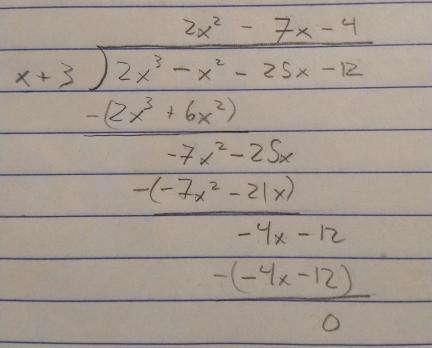 2x² - 7x - 4
x + 3 ) 2x³ - x² - 25x - 12
-(2x³ + 6x²)
-7x² - 25x
-(-7x² - 21x)
-4x - 12
-(-4x - 12)
0